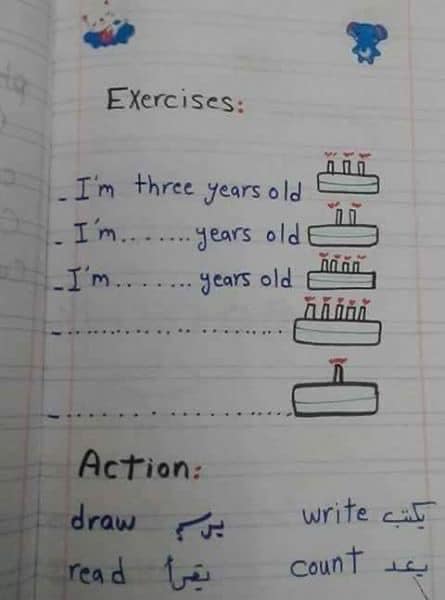 Exercises:
- I'm three years old
- I'm........ years old
- I'm........ years old
- ..........................
- ..........................
Action:
draw يرسم write يكتب
read يقرأ count يعد